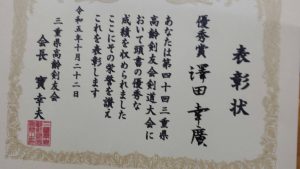 表彰状
優秀賞
澤田幸廣
あなたは第四十回三重県
高齢剣友会剣道大会に
おいて頭書の優秀な
成績を収められました
ここにその栄誉を讃え
これを表彰します
令和五年十月二十二日
三重県高齢剣友会
会長 寳幸夫